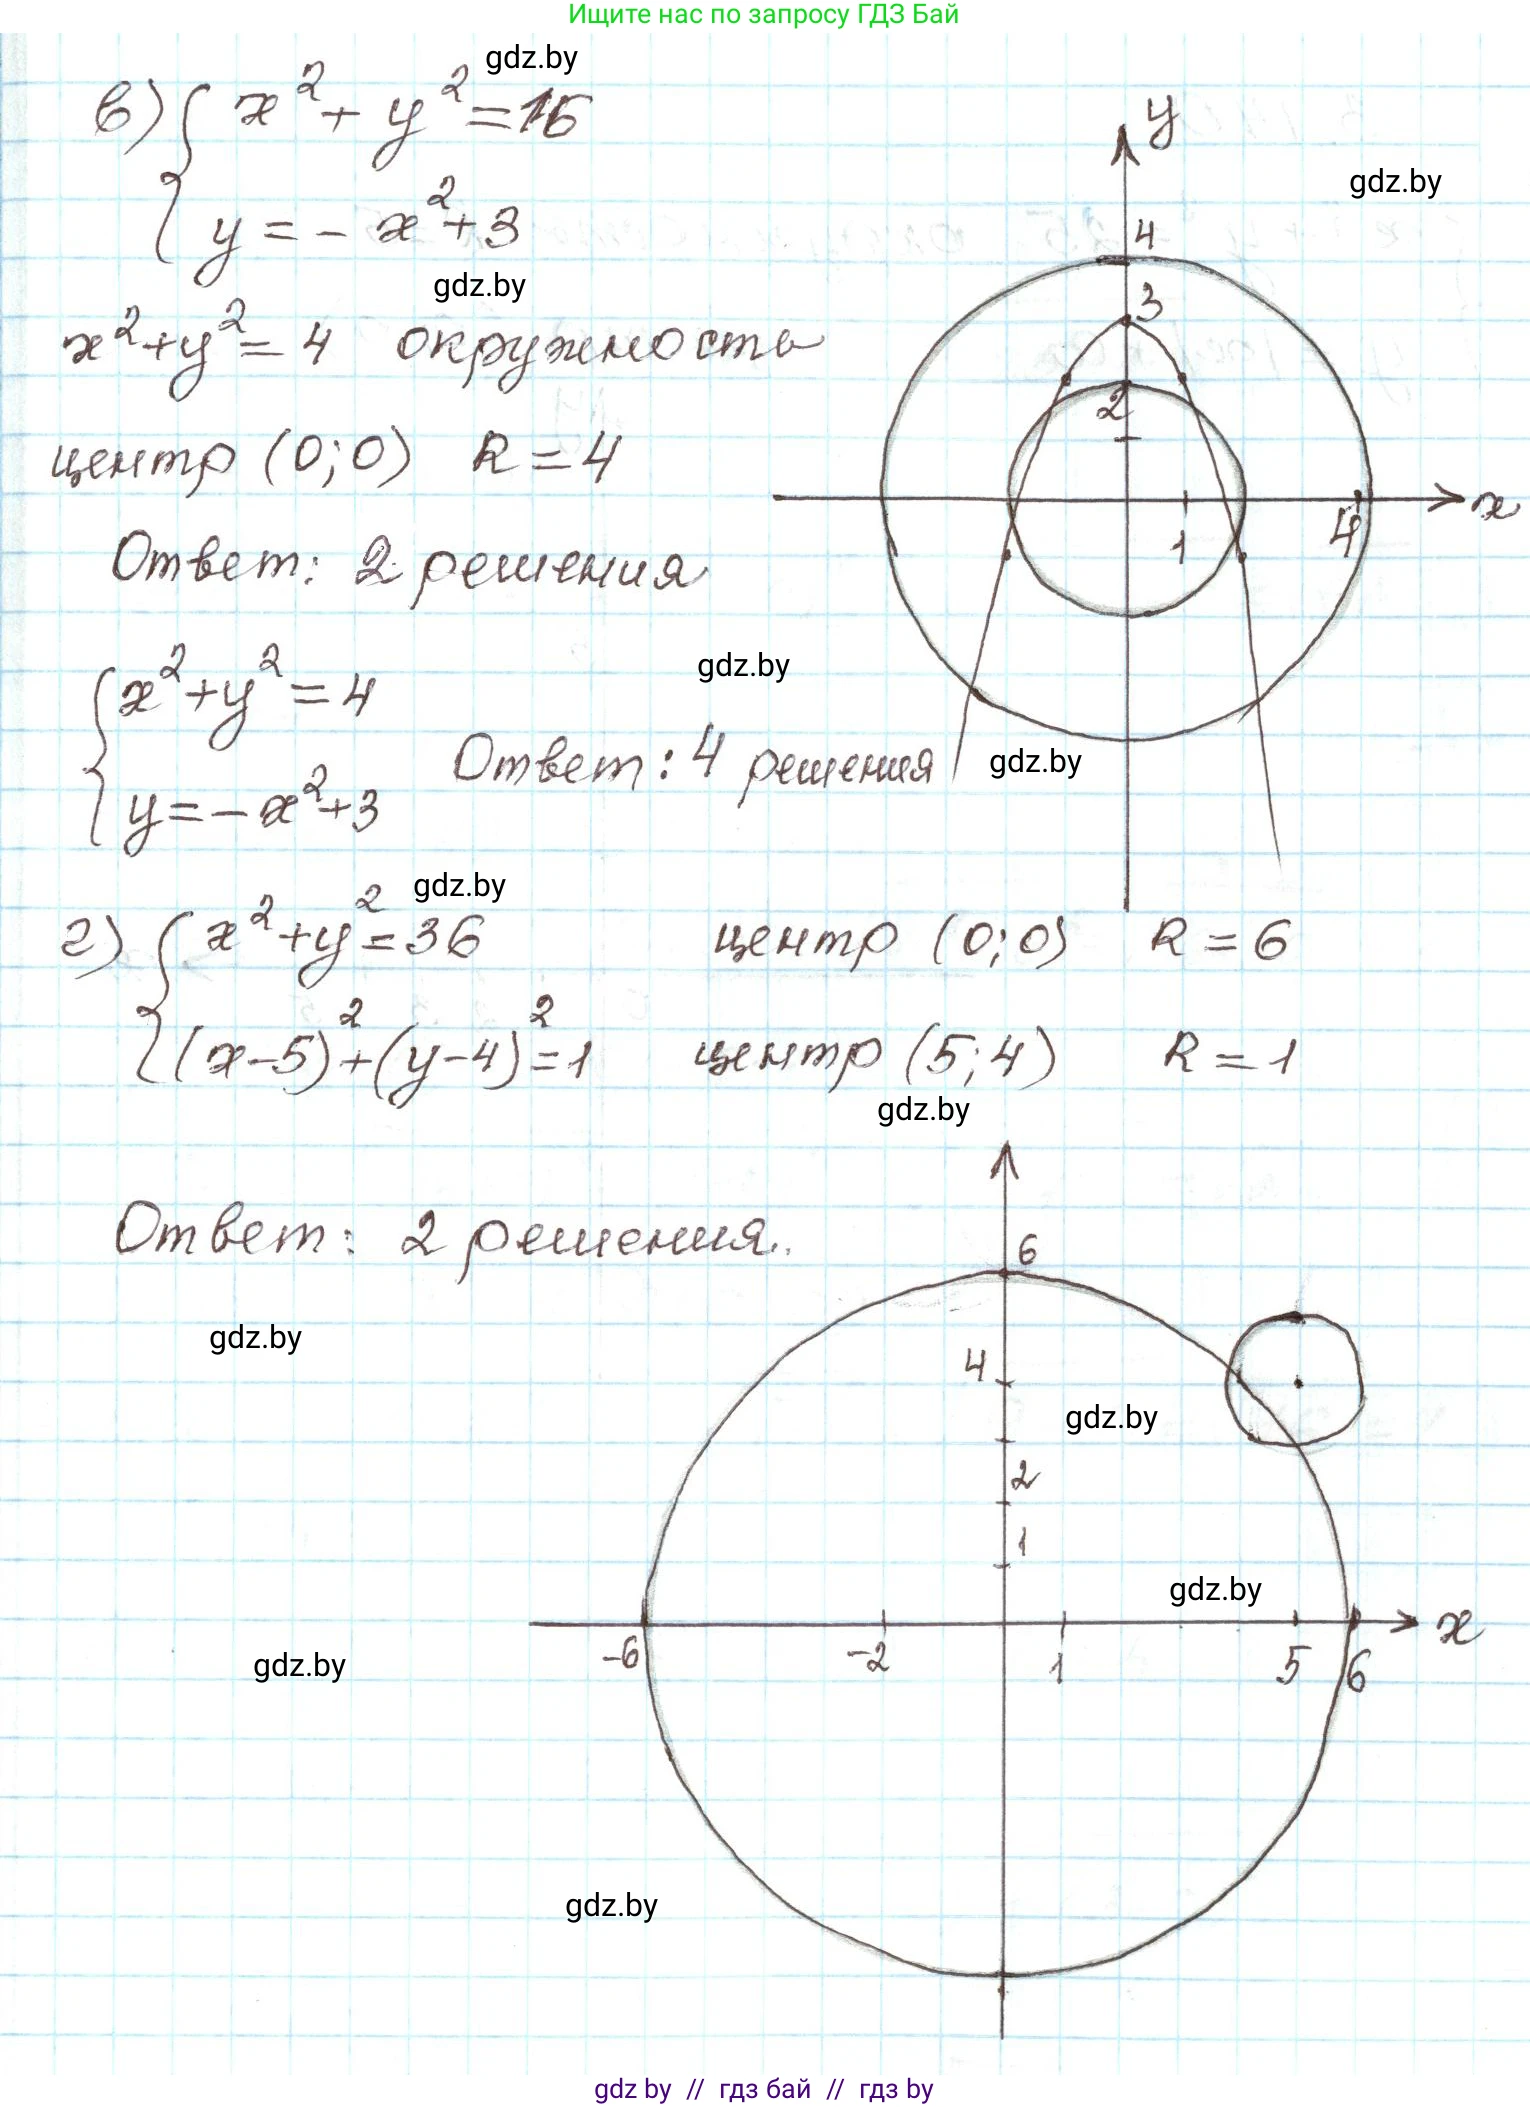 Ищите нас по запросу ГДЗ Бай
gdz.by
в) { x² + y² = 16
y = - x² + 3
gdz.by
x² + y² = 4 окружность
центр (0;0) R = 4
Ответ: 2 решения
y
gdz.by
4
3
2
1
4
x
{ x² + y² = 4
y = - x² + 3
gdz.by
Ответ: 4 решения
gdz.by
gdz.by
г) { x² + y² = 36 центр (0;0) R = 6
(x-5)² + (y-4)² = 1 центр (5;4) R = 1
gdz.by
Ответ: 2 решения.
gdz.by
6
4
gdz.by
2
1
gdz.by
-6 -2 1 5 6 x
gdz.by
gdz.by
gdz by // гдз бай // гдз by